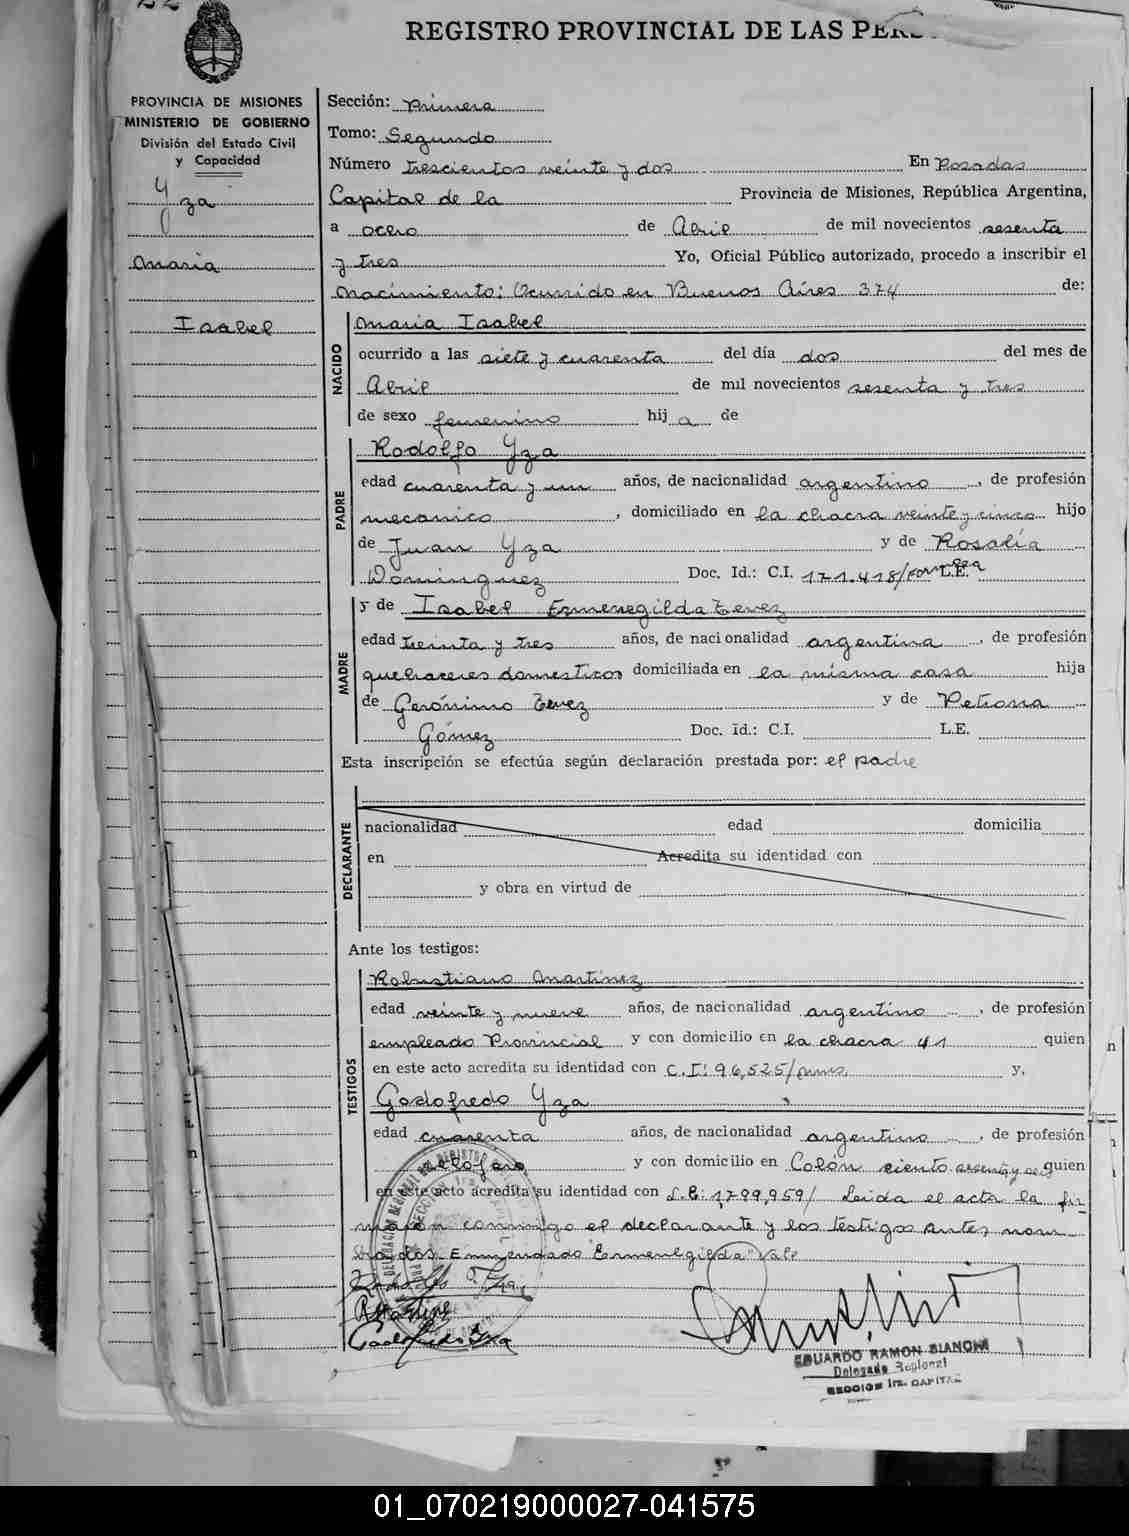 REGISTRO PROVINCIAL DE LAS PERS
PROVINCIA DE MISIONES
MINISTERIO DE GOBIERNO
División del Estado Civil
y Capacidad
Yza
Maria
Isabel
Sección: Primera
Tomo: Segundo
Número trescientos veinte y dos En Posadas
Capital de la Provincia de Misiones, República Argentina,
a ocho de Abril de mil novecientos sesenta
y tres Yo, Oficial Público autorizado, procedo a inscribir el
Nacimiento: Ocurrido en Buenos Aires 374 de:
NACIDO
Maria Isabel
ocurrido a las siete y cuarenta del día dos del mes de
Abril de mil novecientos sesenta y tres
de sexo femenino hij a de
PADRE
Rodolfo Yza
edad cuarenta y un años, de nacionalidad argentino, de profesión
mecanico, domiciliado en la chacra veinte y cinco hijo
de Juan Yza y de Rosalía
Dominguez Doc. Id.: C.I. 171.418/ L.E.
MADRE
y de Isabel Ermenegilda Tevez
edad treinta y tres años, de nacionalidad argentina, de profesión
quehaceres domesticos domiciliada en la misma casa hija
de Gerónimo Tevez y de Petrona
Gómez Doc. Id.: C.I. L.E.
Esta inscripción se efectúa según declaración prestada por: el padre
DECLARANTE
nacionalidad edad domicilia
en Acredita su identidad con
y obra en virtud de
Ante los testigos:
TESTIGOS
Robustiano Martínez
edad veinte y nueve años, de nacionalidad argentino, de profesión
empleado Provincial y con domicilio en la chacra 41 quien
en este acto acredita su identidad con C.I: 96,525/ y,
Godofredo Yza
edad cuarenta años, de nacionalidad argentino, de profesión
y con domicilio en Colón ciento sesenta y seis quien
en este acto acredita su identidad con L.E: 1,799,959/ Leida el acta la fir
maron conmigo el declarante y los testigos antes nom
brados. Enmendado "Ermenegilda" Vale
Godofredo Yza
EDUARDO RAMON BIANCHI
Delegado Regional
SECCION 1ra. CAPITAL
01_070219000027-041575